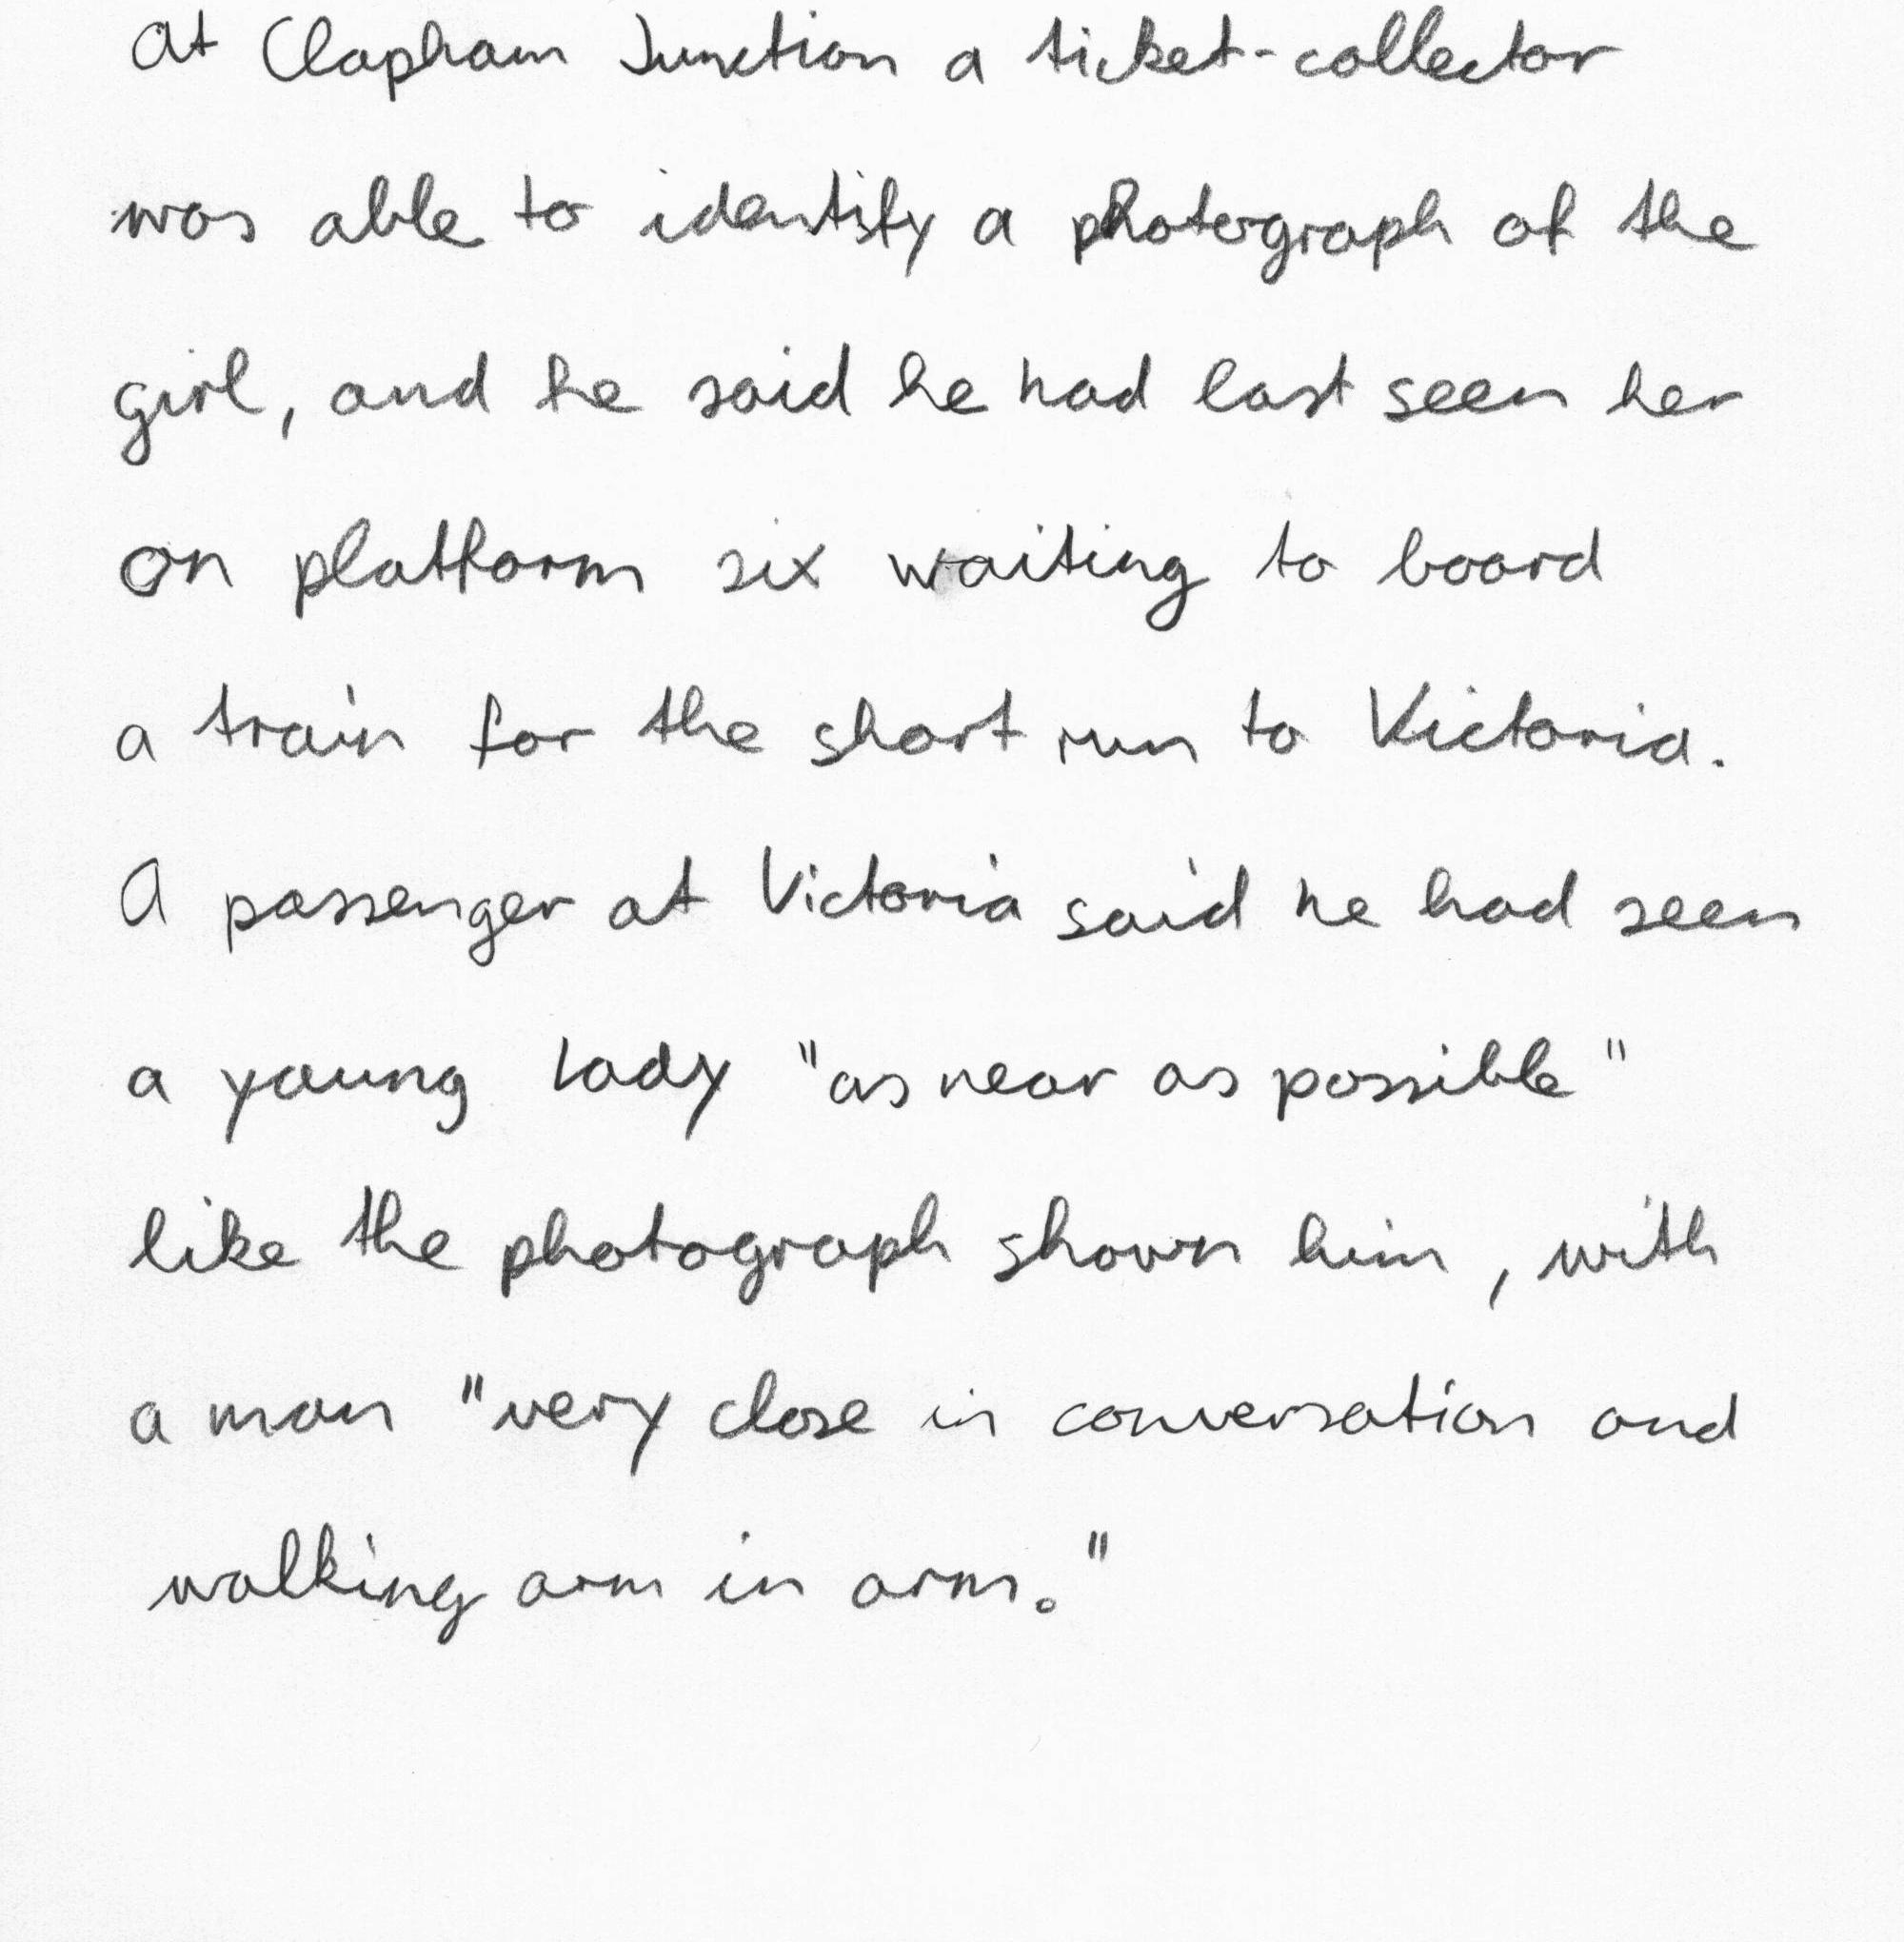 At Clapham Junction a ticket-collector
was able to identify a photograph of the
girl, and he said he had last seen her
on platform six waiting to board
a train for the short run to Victoria.
A passenger at Victoria said he had seen
a young lady "as near as possible"
like the photograph shown him, with
a man "very close in conversation and
walking arm in arm."